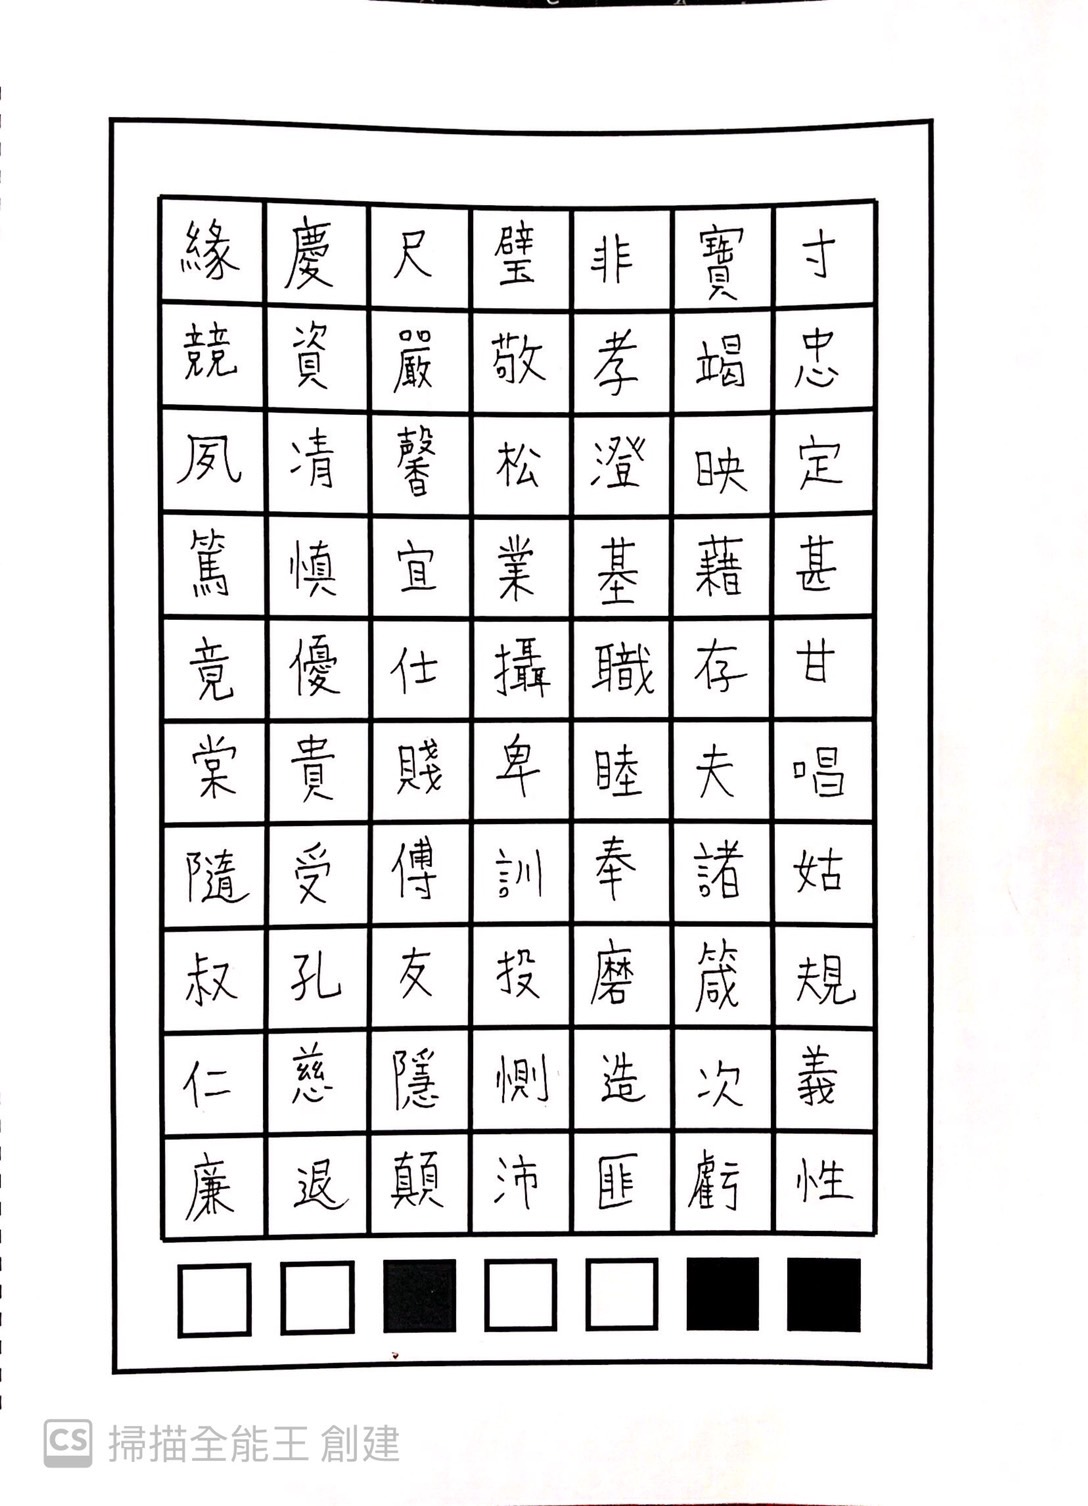 緣慶尺璧非寶寸
競資嚴敬孝竭忠
夙凊馨松澄映定
篤慎宜業基藉甚
竟優仕攝職存甘
棠貴賤卑睦夫唱
隨受傅訓奉諸姑
叔孔友投磨箴規
仁慈隱惻造次義
廉退顛沛匪虧性
CS 掃描全能王 創建